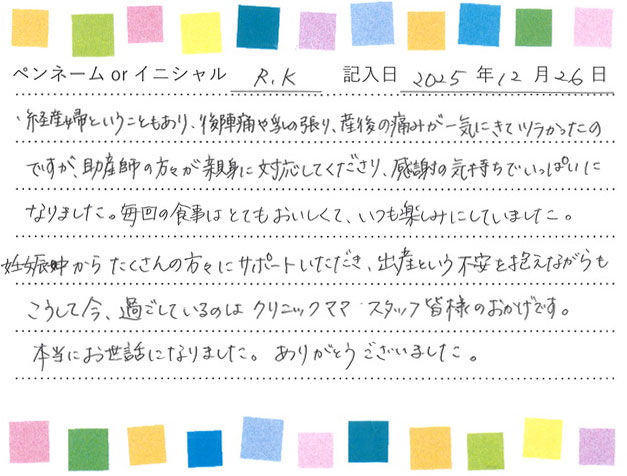 ペンネーム or イニシャル R.K 記入日 2025 年 12 月 26 日
・経産婦ということもあり、後陣痛や乳の張り、産後の痛みが一気にきてツラかったの
ですが、助産師の方々が親身に対応してくださり、感謝の気持ちでいっぱいに
なりました。毎回の食事はとてもおいしくて、いつも楽しみにしていました。
妊娠中からたくさんの方々にサポートいただき、出産という不安を抱えながらも
こうして今、過ごしているのはクリニックママ スタッフ皆様のおかげです。
本当にお世話になりました。ありがとうございました。